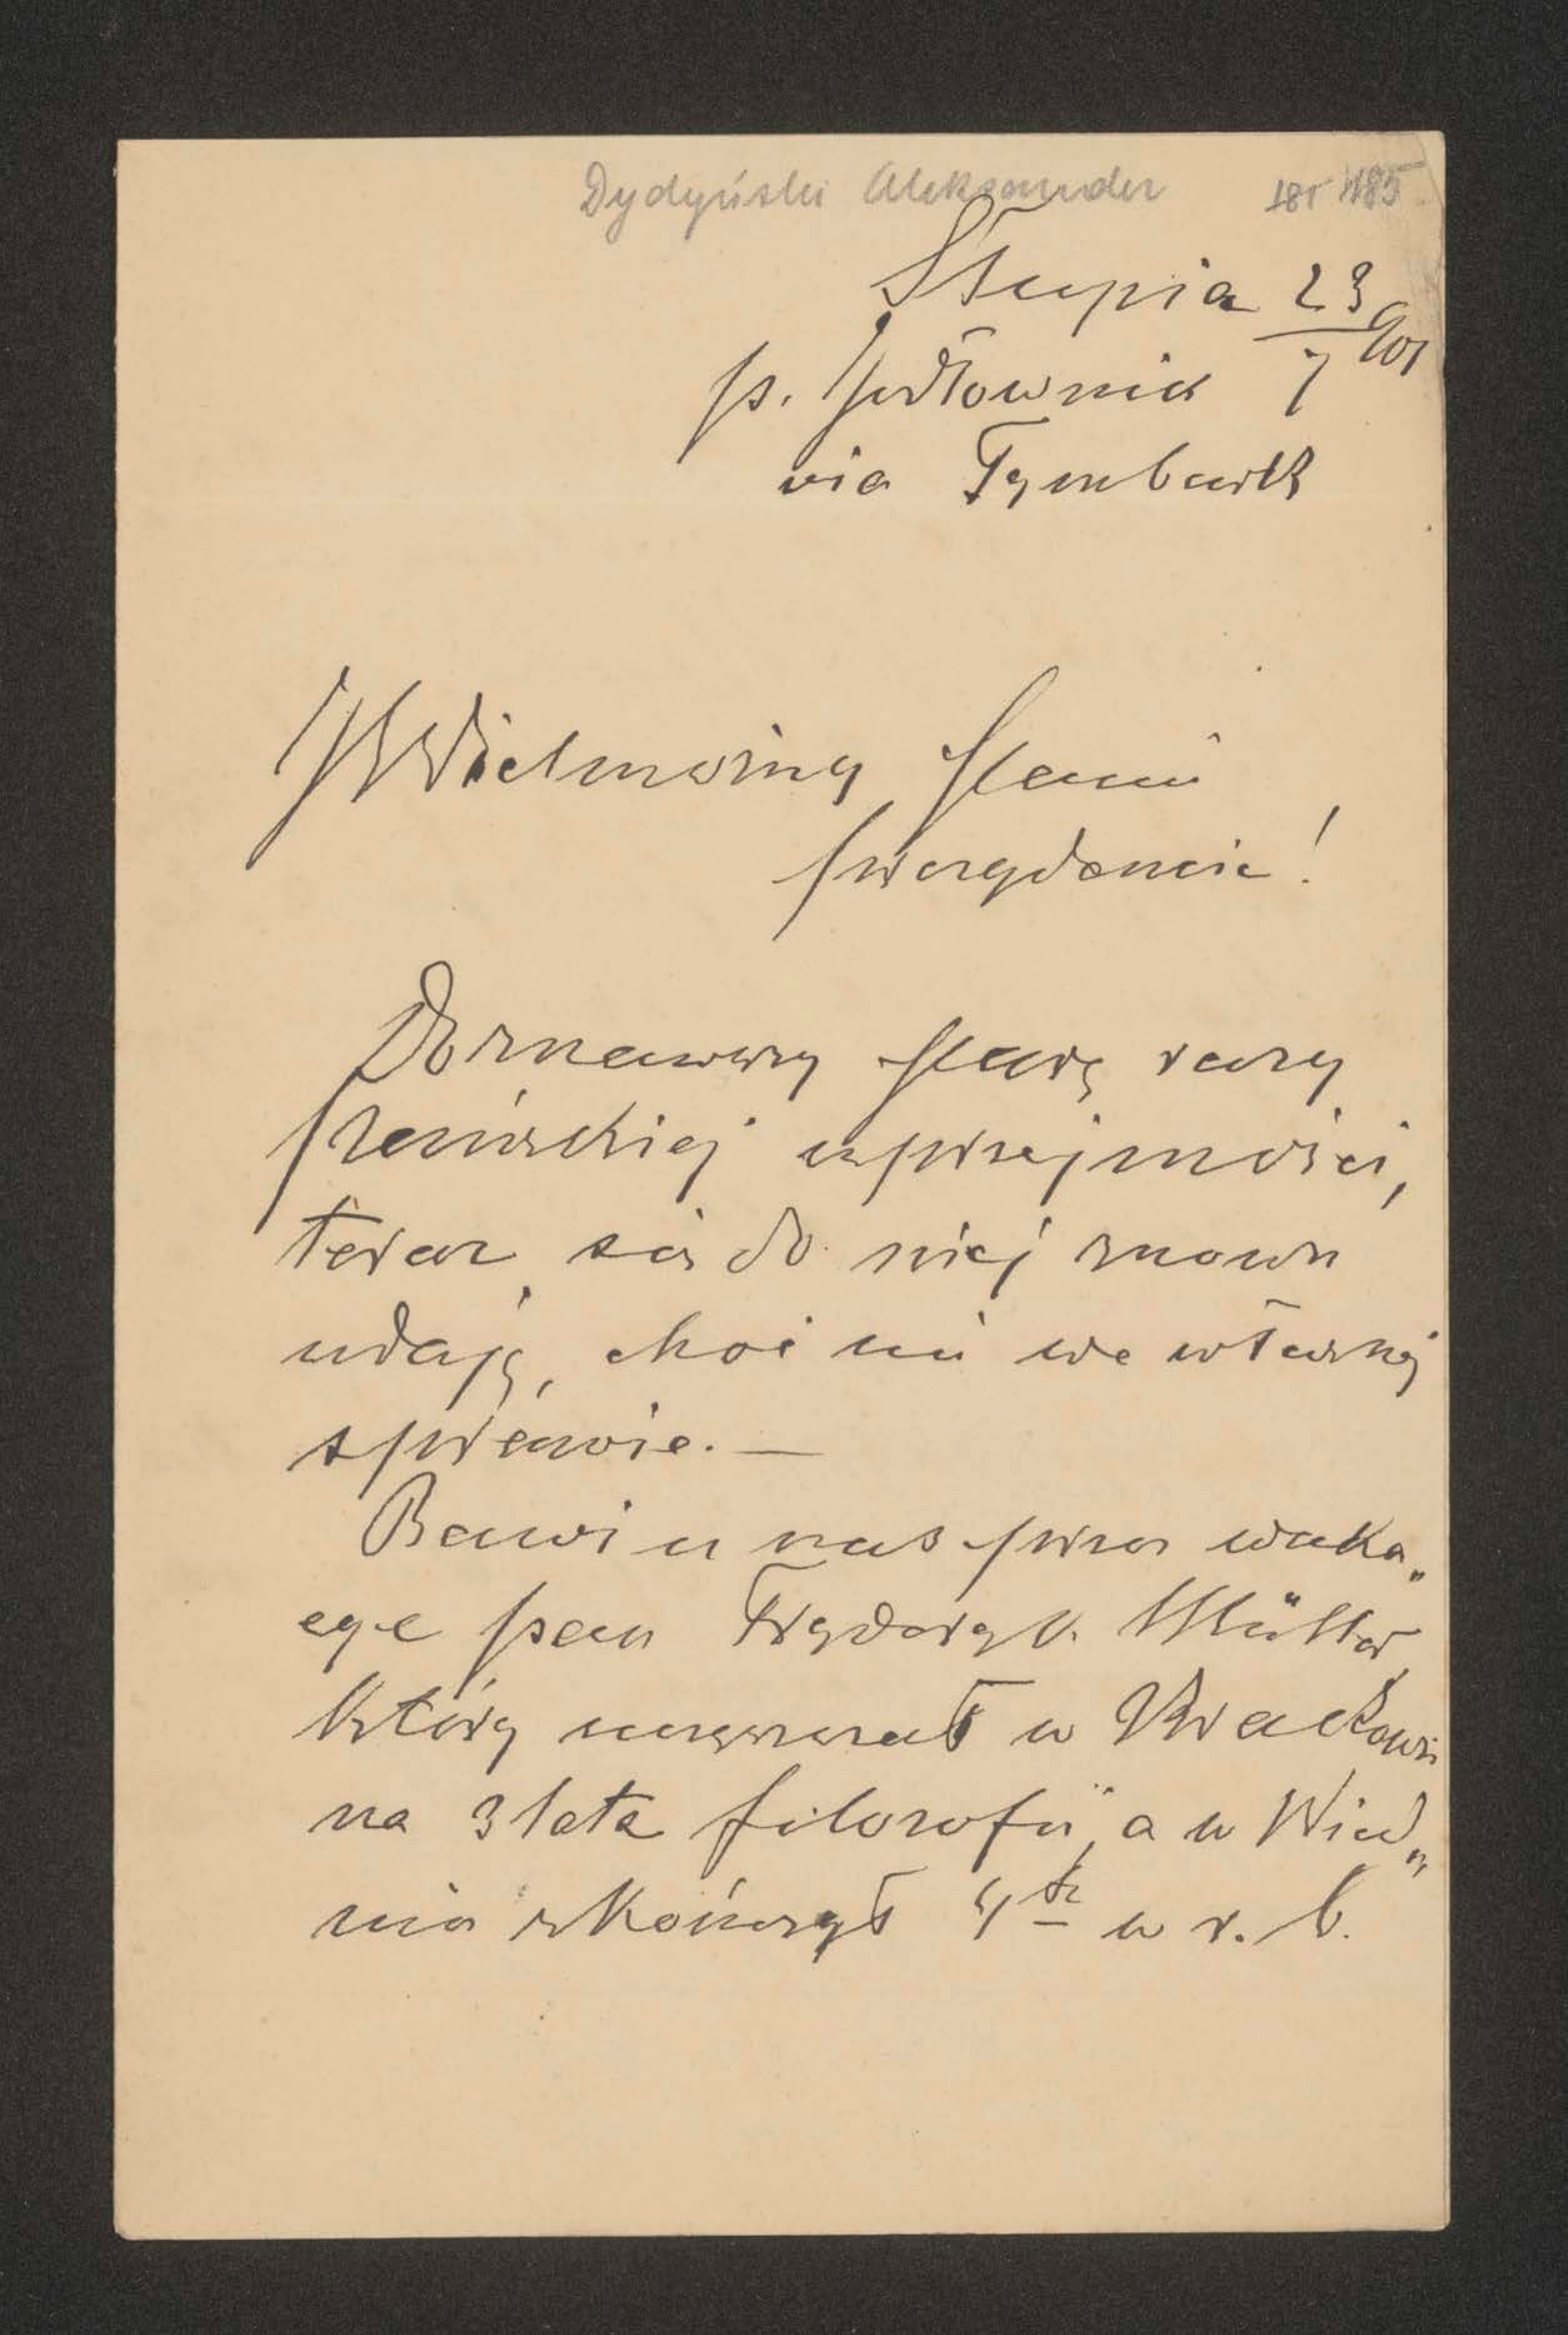 Dydyński Aleksander 181 485
Słupia 23/7 901
p. Jodłownik
via Tymbark
JWielmożny Panie
Prezydencie!
Doznawszy parę razy
Pańskiej uprzejmości,
teraz się do niej znowu
udaję, choć nie we własnej
sprawie. —
Bawi u nas przez waka„
cye pan Fryderyk Müller
który uczęszczał w Krakowie
na 3 lata filozofii, a w Wied„
niu skończył 4te w r. b.